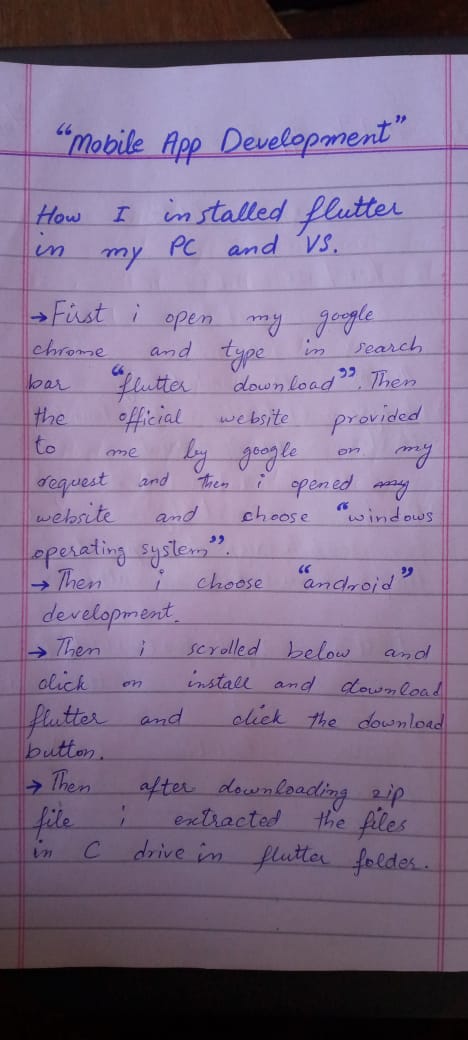 “Mobile App Development”
How I installed flutter
in my PC and VS.
→ First i open my google
chrome and type in search
bar “flutter download”. Then
the official website provided
to me by google on my
request and then i opened my
website and choose “windows
operating system”.
→ Then i choose “android”
development.
→ Then i scrolled below and
click on install and download
flutter and click the download
button.
→ Then after downloading zip
file i extracted the files
in C drive in flutter folder.